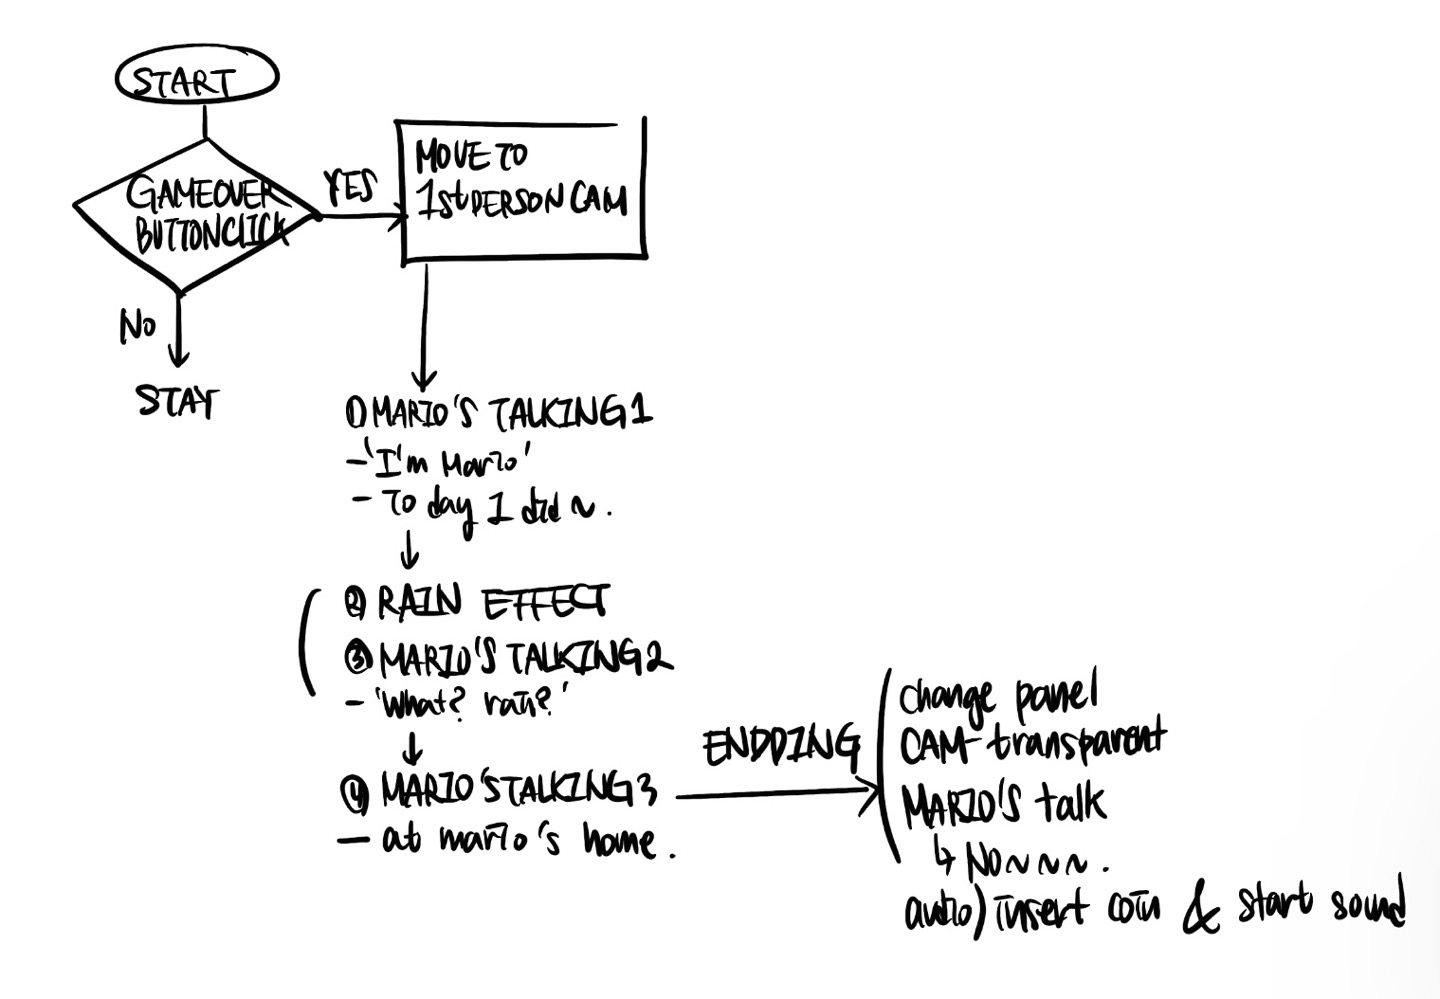 START
GAMEOVER
BUTTONCLICK
YES
MOVE TO
1st PERSON CAM
NO
STAY
① MARIO'S TALKING 1
- 'I'm Mario'
- To day I did ~.
② RAIN EFFECT
③ MARIO'S TALKING 2
- 'What? rain?'
④ MARIO'S TALKING 3
- at mario's home.
ENDDING
change panel
CAM-transparent
MARIO'S talk
↳ No~~~.
audio) insert coin & start sound